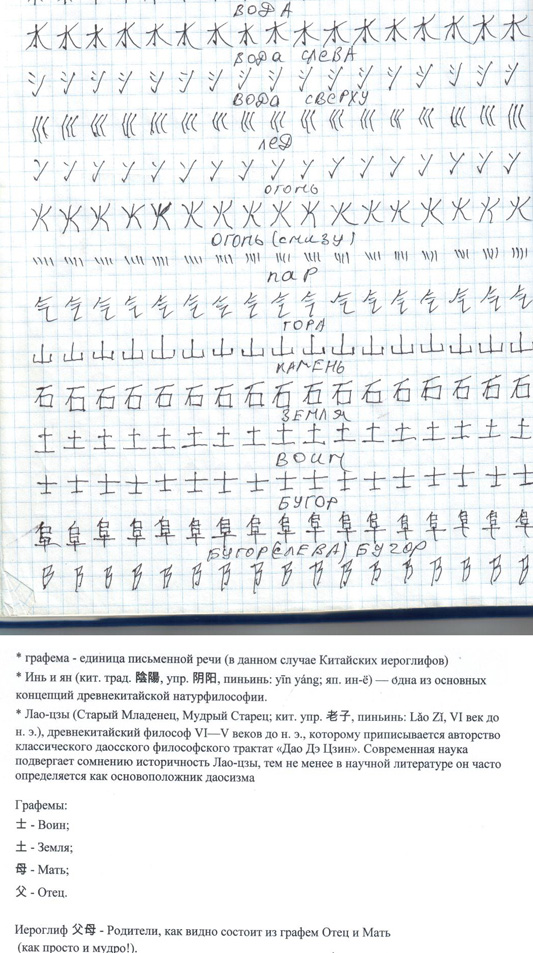 ВОДА
水水水水水水水水水水水水水水水水水
ВОДА СЛЕВА
氵氵氵氵氵氵氵氵氵氵氵氵氵氵氵氵氵
ВОДА СВЕРХУ
巛巛巛巛巛巛巛巛巛巛巛巛巛巛巛巛巛
ЛЕД
冫冫冫冫冫冫冫冫冫冫冫冫冫冫冫冫冫
ОГОНЬ
火火火火火火火火火火火火火火火火火
ОГОНЬ (снизу)
灬灬灬灬灬灬灬灬灬灬灬灬灬灬灬灬灬
ПАР
气气气气气气气气气气气气气气气气气
ГОРА
山山山山山山山山山山山山山山山山山
КАМЕНЬ
石石石石石石石石石石石石石石石石石
ЗЕМЛЯ
土土土土土土土土土土土土土土土土土
ВОИН
士士士士士士士士士士士士士士士士士
БУГОР
阜阜阜阜阜阜阜阜阜阜阜阜阜阜阜阜阜
БУГОР(СЛЕВА) БУГОР
阝阝阝阝阝阝阝阝阝阝阝阝阝阝阝阝阝
* графема - единица письменной речи (в данном случае Китайских иероглифов)
* Инь и ян (кит. трад. 陰陽, упр. 阴阳, пиньинь: yīn yáng; яп. ин-ё) — одна из основных
концепций древнекитайской натурфилософии.
* Лао-цзы (Старый Младенец, Мудрый Старец; кит. упр. 老子, пиньинь: Lǎo Zǐ, VI век до
н. э.), древнекитайский философ VI—V веков до н. э., которому приписывается авторство
классического даосского философского трактата «Дао Дэ Цзин». Современная наука
подвергает сомнению историчность Лао-цзы, тем не менее в научной литературе он часто
определяется как основоположник даосизма
Графемы:
士 - Воин;
土 - Земля;
母 - Мать;
父 - Отец.
Иероглиф 父母 - Родители, как видно состоит из графем Отец и Мать
(как просто и мудро!).